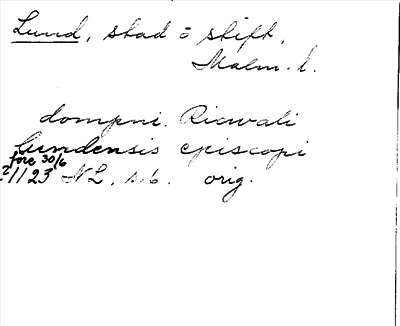 Lund, stad o stift,
Malm. l.
dompni. Ricwali
lundensis episcopi
före 30/6
1123 NL. s. 6. orig.